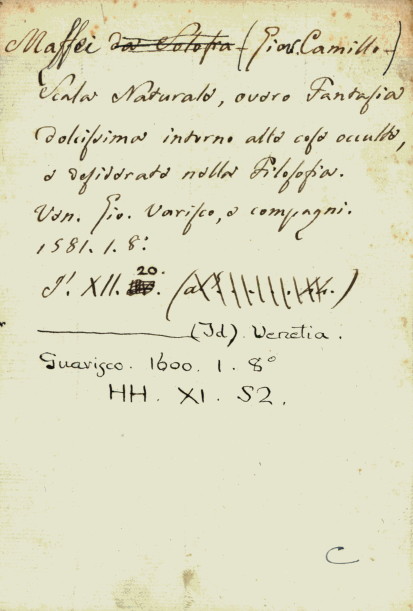 Maffei da Solofra (Giov. Camillo)
Scala Naturale, overo Fantasia
dolcissima intorno alle cose occulte,
e desiderate nella Filosofia.
Ven. Gio. Varisco, e compagni.
1581. 1. 8.°
J. XII. 20.
(Id). Venetia.
Guarisco. 1600. 1. 8°
HH. XI. 52.
C